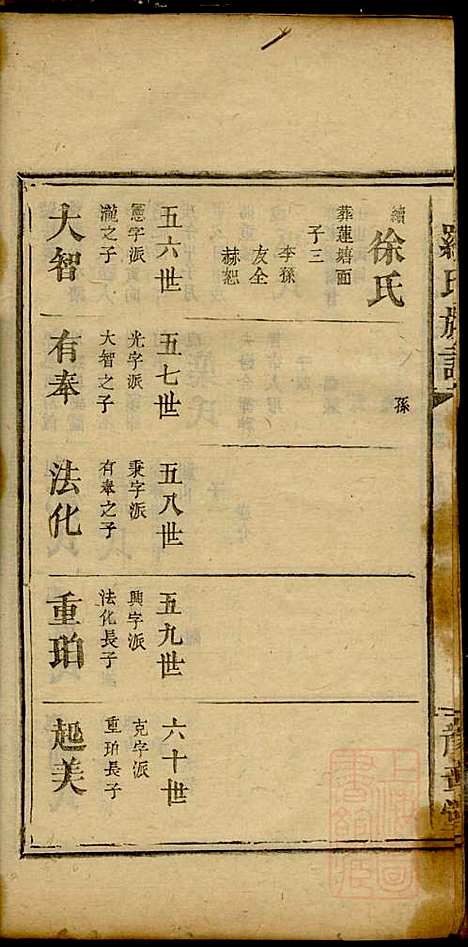 續
徐氏
葬蓮塘面
子三
李孫
友全
赫恕
孫
五六世
憲字派
瀧之子
大智
五七世
光字派
大智之子
有奉
五八世
秉字派
有奉之子
法化
五九世
興字派
法化長子
重珀
六十世
克字派
重珀長子
起美
羅氏族譜
豫章堂